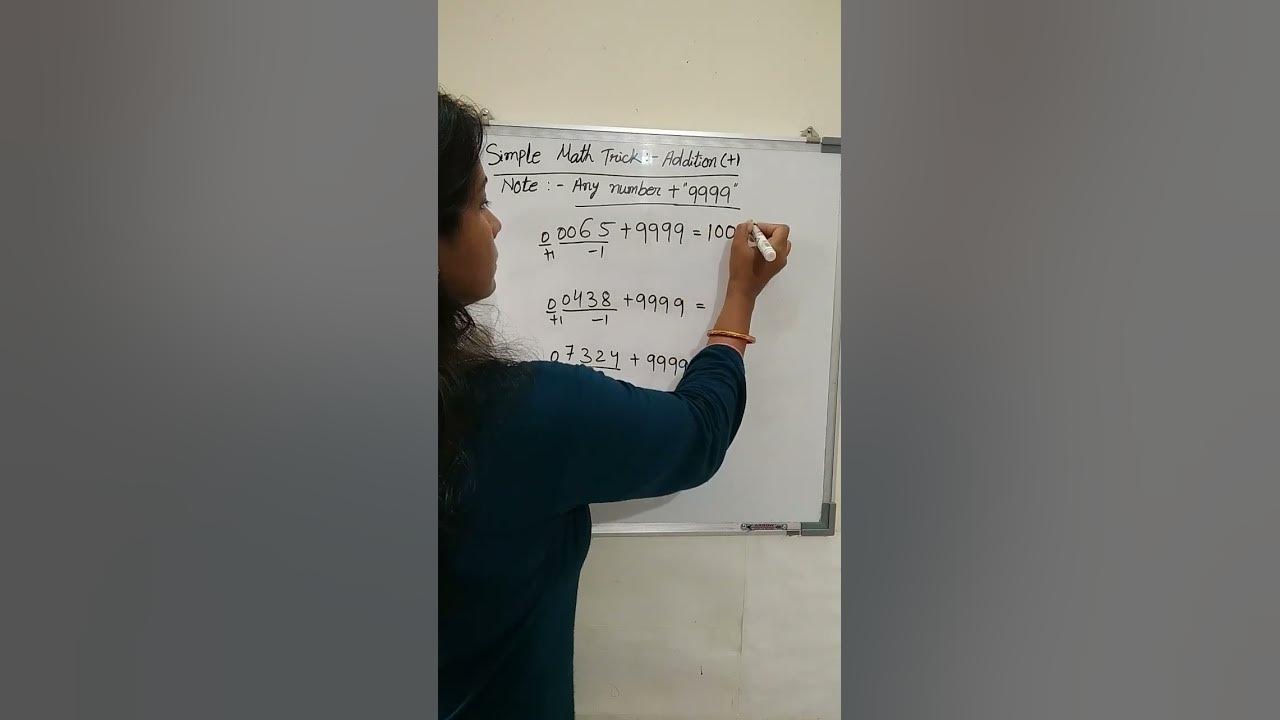 Simple Math Trick :- Addition (+)
Note :- Any number + "9999"
0 0065 + 9999 = 100
+1 -1
0 0438 + 9999 =
+1 -1
07324 + 9999